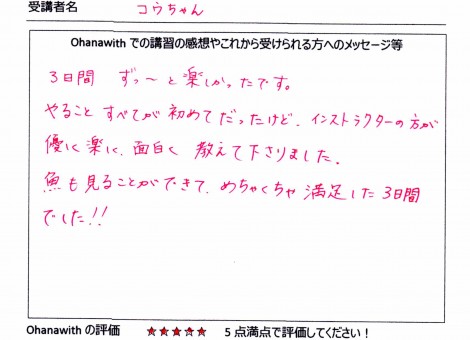 受講者名 コウちゃん
Ohanawith での講習の感想やこれから受けられる方へのメッセージ等
3日間 ずっ〜と楽しかったです。
やること すべてが 初めてだったけど、インストラクターの方が
優しく楽しく、面白く 教えて下さりました。
魚も見ることができて、めちゃくちゃ満足した3日間
でした!!
Ohanawith の評価 ★★★★★ 5点満点で評価してください！